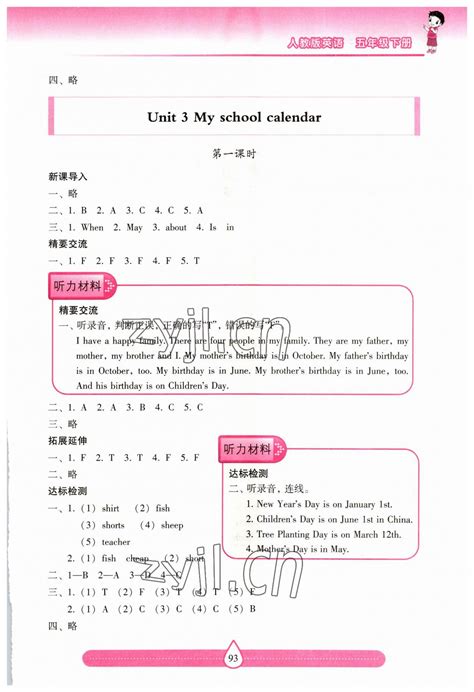 人教版英语 五年级下册
四、略
Unit 3 My school calendar
第一课时
新课导入
一、略
二、1. B 2. A 3. C 4. C 5. A
三、1. When 2. May 3. about 4. Is in
精要交流
一、1. F 2. F 3. F 4. F 5. T
听力材料
精要交流
一、听录音，判断正误，正确的写“T”，错误的写“F”。
I have a happy family. There are four people in my family. They are my father, my
mother, my brother and I. My mother's birthday is in October. My father's birthday
is in October, too. My birthday is in June. My brother's birthday is in June, too.
And his birthday is on Children's Day.
二、1. A 2. A 3. C 4. A 5. C
三、略
拓展延伸
一、1. F 2. T 3. T 4. F 5. T
二、略
达标检测
一、1. (1) shirt (2) fish
(3) shorts (4) sheep
(5) teacher
2. (1) fish cheap (2) short
二、1—B 2—A 3—D 4—C
三、1. (1) T (2) F (3) F (4) T
2. (1) T (2) F (3) T (4) F
四、略
听力材料
达标检测
二、听录音，连线。
1. New Year's Day is on January 1st.
2. Children's Day is on June 1st in China.
3. Tree Planting Day is on March 12th.
4. Mother's Day is in May.
zyjl.cn
zyjl.cn
93